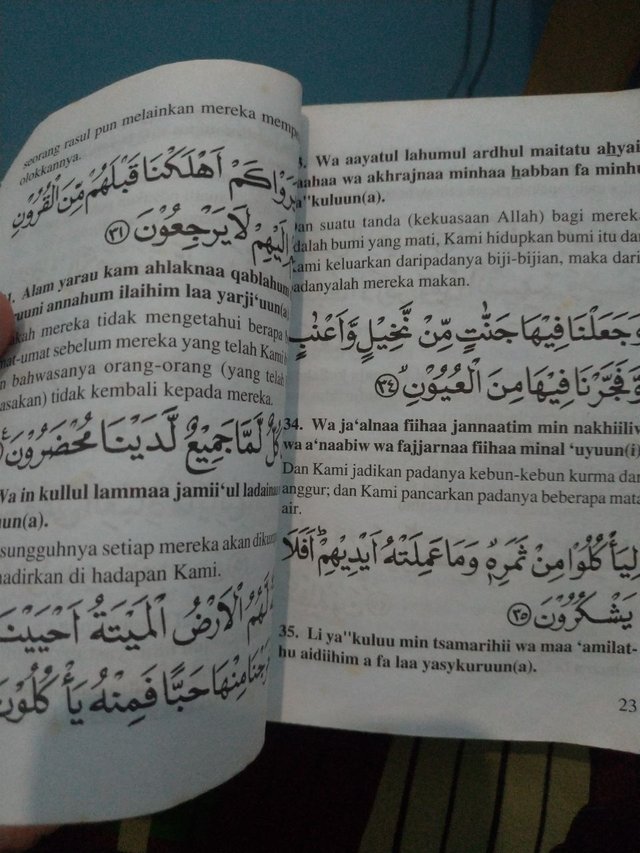 seorang rasul pun melainkan mereka mempe
olokkannya.
يَرَوْاكَمْ اَهْلَكْنَا قَبْلَهُمْ مِّنَ الْقُرُوْنِ
اِلَيْهِمْ لَا يَرْجِعُوْنَ ٣١
Alam yarau kam ahlaknaa qablahum
ruuni annahum ilaihim laa yarji'uun(a).
kah mereka tidak mengetahui berapa
mat-umat sebelum mereka yang telah Kami
n bahwasanya orang-orang (yang telah
asakan) tidak kembali kepada mereka.
كُلٌّ لَّمَّا جَمِيْعٌ لَّدَيْنَا مُحْضَرُوْنَ
Wa in kullul lammaa jamii'ul ladainaa
uun(a).
sungguhnya setiap mereka akan dikum
hadirkan di hadapan Kami.
لَّهُمُ الْاَرْضُ الْمَيْتَةُ اَحْيَيْنٰ
رَجْنَا مِنْهَا حَبًّا فَمِنْهُ يَأْكُلُوْنَ
Wa aayatul lahumul ardhul maitatu ahyai
aahaa wa akhrajnaa minhaa habban fa minhu
a"kuluun(a).
an suatu tanda (kekuasaan Allah) bagi merek
dalah bumi yang mati, Kami hidupkan bumi itu da
Kami keluarkan daripadanya biji-bijian, maka dari
adanyalah mereka makan.
وَجَعَلْنَا فِيْهَا جَنّٰتٍ مِّنْ نَّخِيْلٍ وَّاَعْنَابٍ
وَّفَجَّرْنَا فِيْهَا مِنَ الْعُيُوْنِ ٣٤
34. Wa ja'alnaa fiihaa jannaatim min nakhiiliw
wa a'naabiw wa fajjarnaa fiihaa minal 'uyuun(i)
Dan Kami jadikan padanya kebun-kebun kurma dan
anggur; dan Kami pancarkan padanya beberapa mata
air.
لِيَأْكُلُوْا مِنْ ثَمَرِهٖ وَمَا عَمِلَتْهُ اَيْدِيْهِمْ اَفَلَا
يَشْكُرُوْنَ ٣٥
35. Li ya"kuluu min tsamarihii wa maa 'amilat-
hu aidiihim a fa laa yasykuruun(a).
23